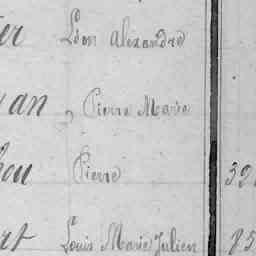 er Léon Alexandre
an Pierre Marie
hou Pierre 32
rt Louis Marie Julien 85